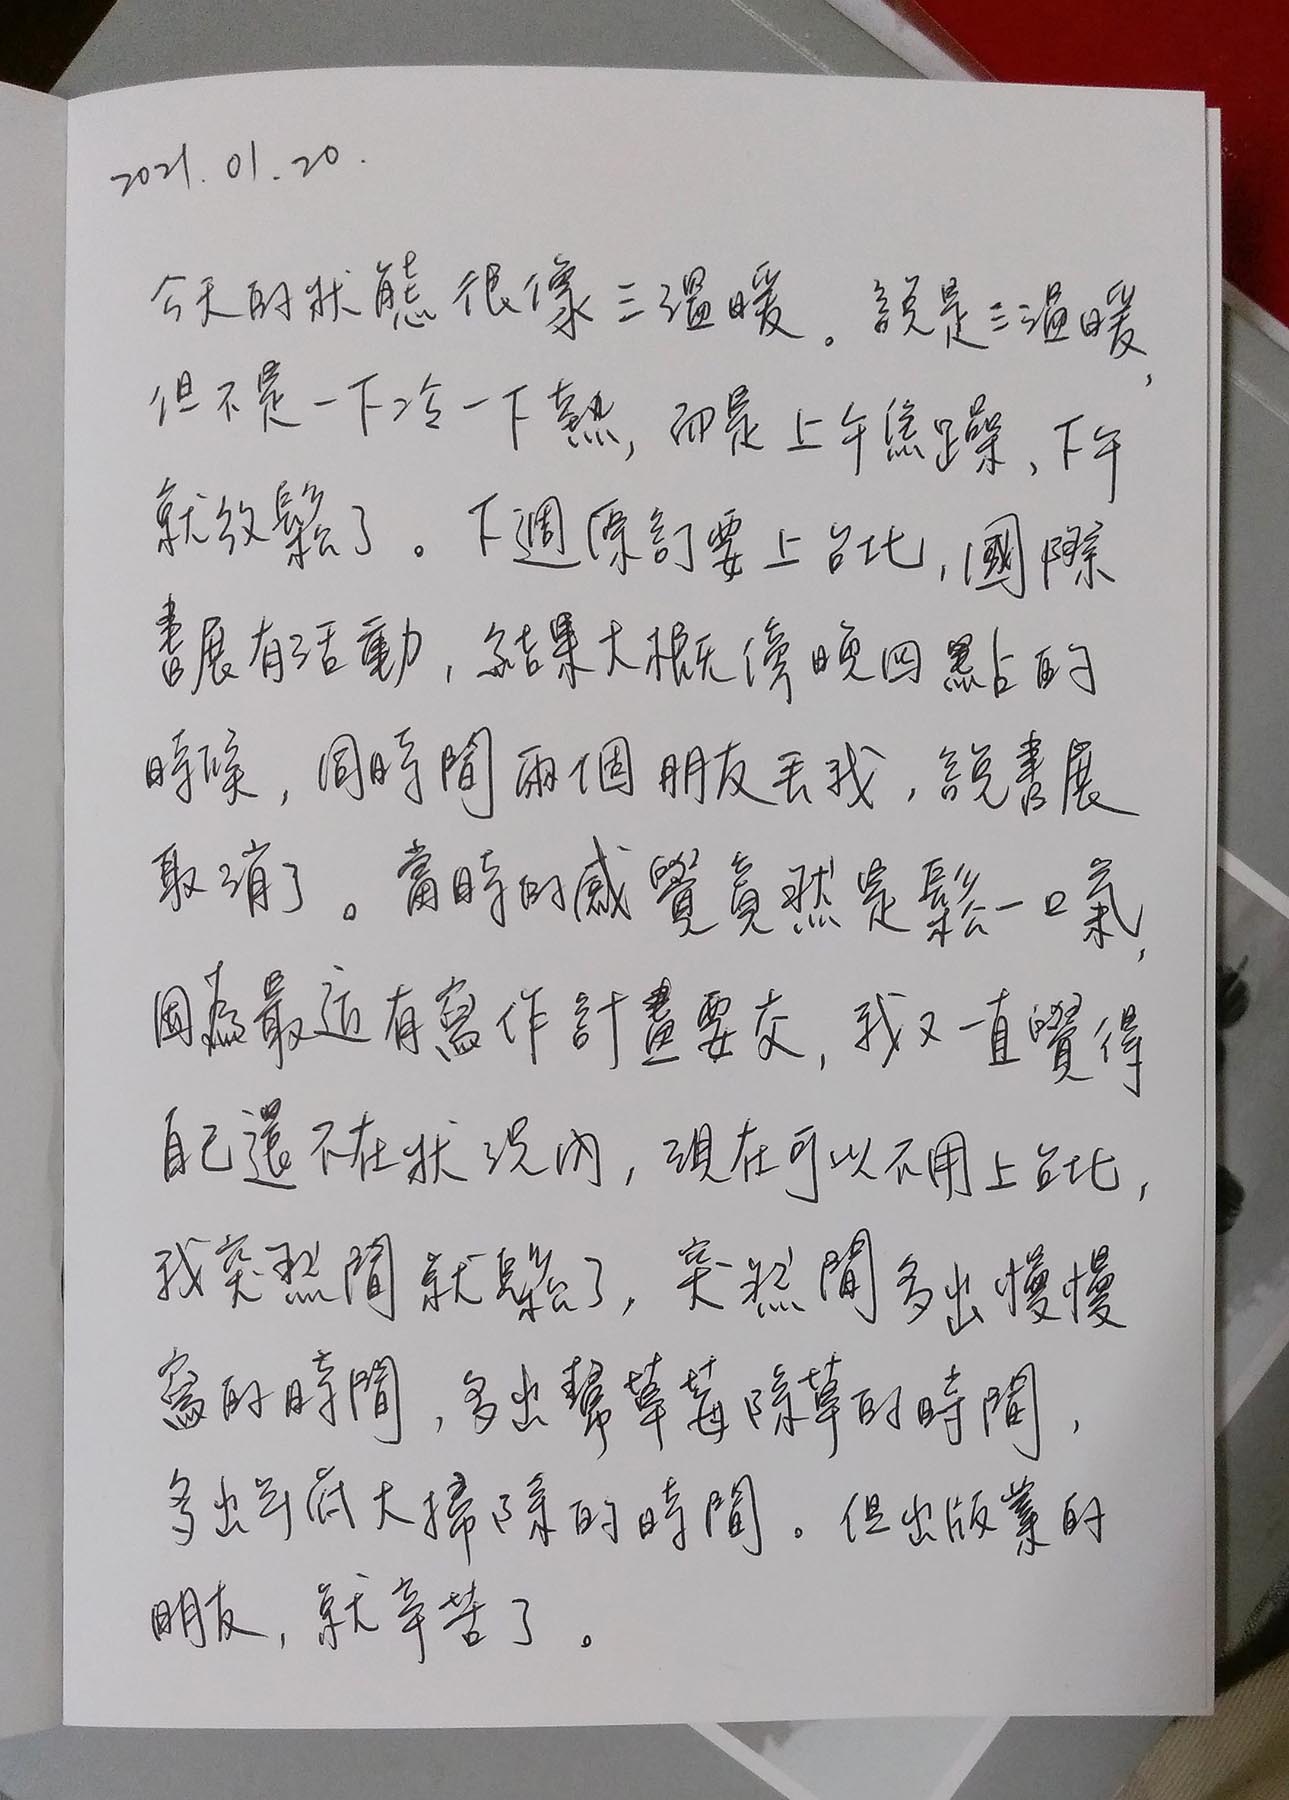 2021.01.20.
今天的狀態很像三溫暖。說是三溫暖,
但不是一下冷一下熱,而是上午焦躁,下午
就放鬆了。下週原訂要上台北,國際
書展有活動,結果大概傍晚四點的
時候,同時間兩個朋友丟我,說書展
取消了。當時的感覺竟然是鬆一口氣,
因為最近有寫作計畫要交,我又一直覺得
自己還不在狀況內,現在可以不用上台北,
我突然間就鬆了,突然間多出慢慢
寫的時間,多出幫草莓除草的時間,
多出年底大掃除的時間。但出版業的
朋友,就辛苦了。